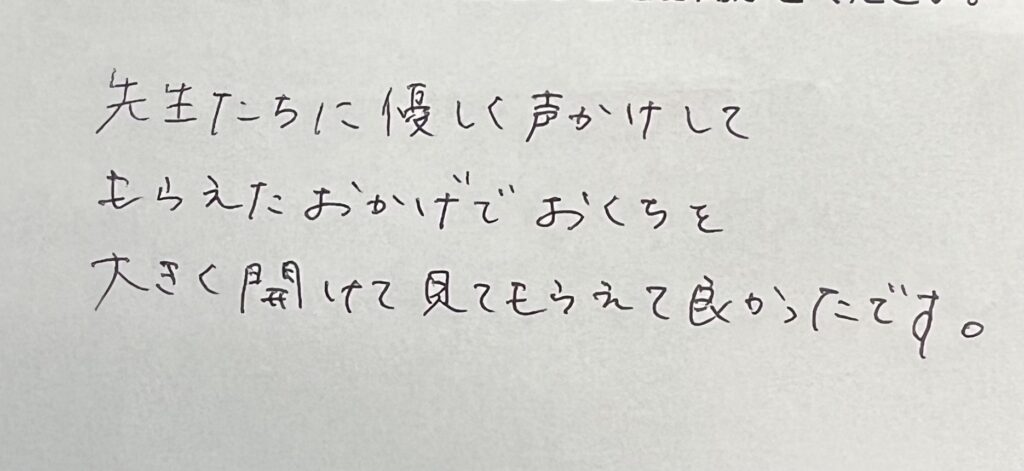 先生たちに優しく声かけして
もらえたおかげでおくちを
大きく開けて見てもらえて良かったです。